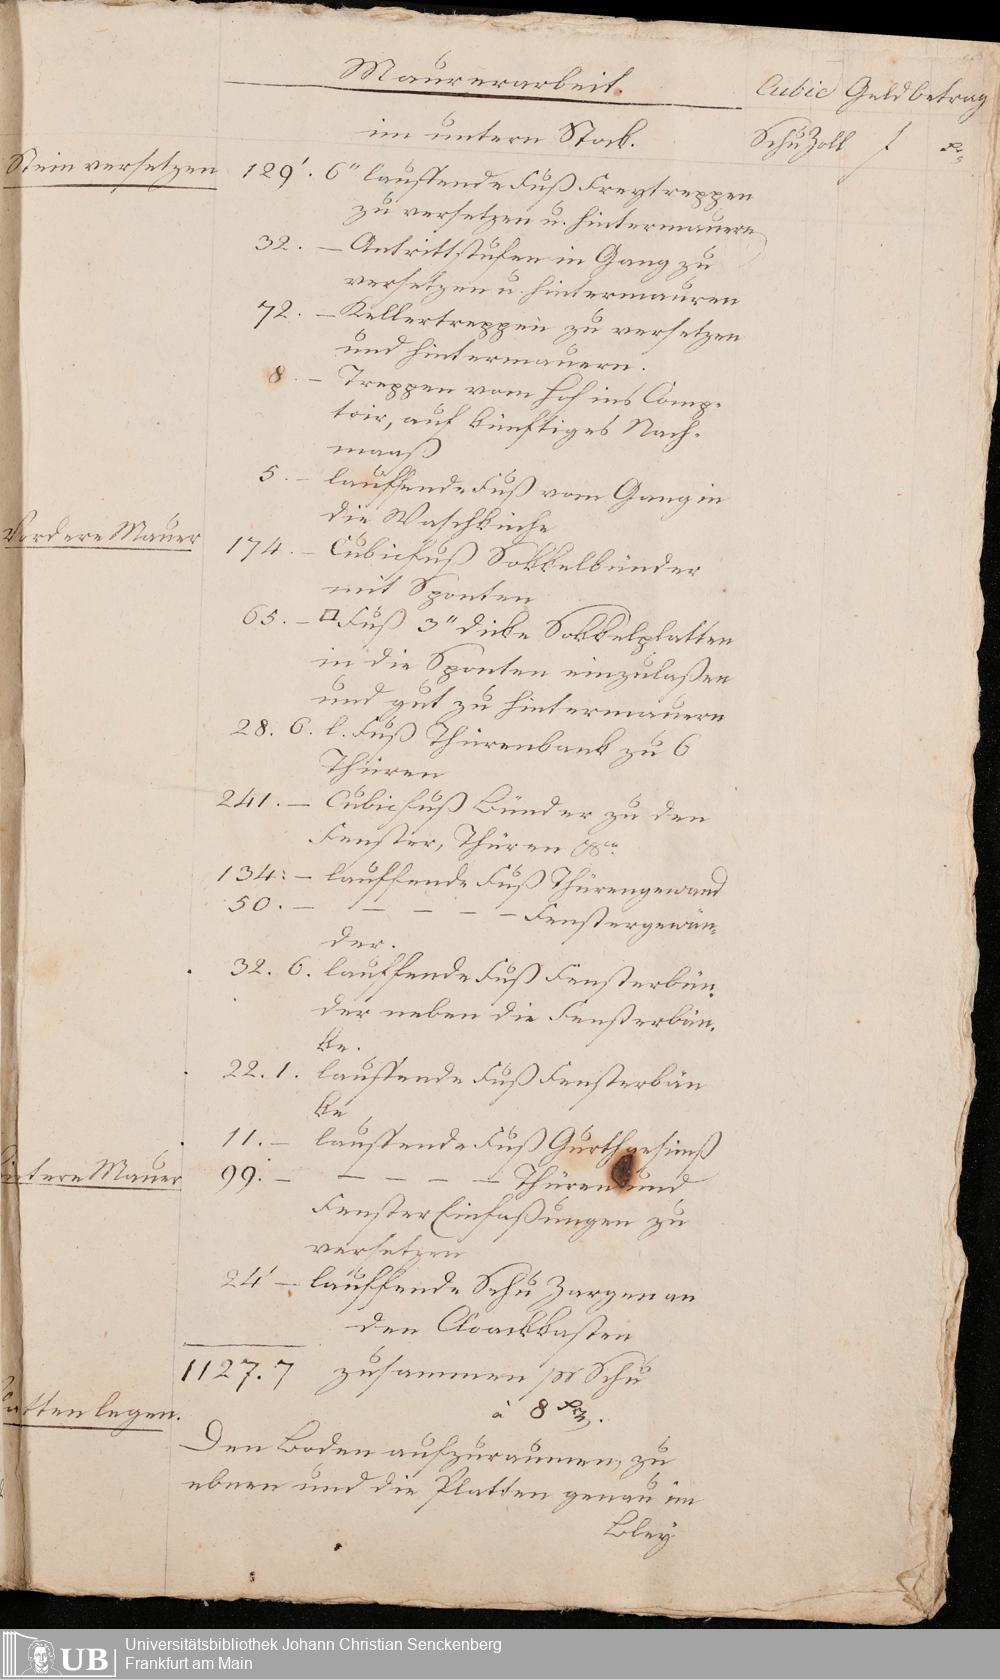 Maurerarbeit.
Cubic Geldbetrag
im untern Stock.
Schu Zoll f kr
Stein versetzen
129'. 6" lauffende Fuß Freytreppen
zu versetzen u. hintermauern
32. – Antrittstufen in Gang zu
versetzen u. hintermauren
72. – Kellertreppen zu versetzen
und hintermauern.
8. – Treppen vom Hof ins Comp-
toir, auf künftiges Nach-
maaß
5. – lauffende Fuß vom Gang in
die Waschküche
Vordere Mauer
174. – Cubicfuß Sokkelbünder
mit Sponten
65. – □ Fuß 3" dicke Sokkelplatten
in die Sponten einzulaßen
und gut zu hintermauern
28. 6. l. Fuß Thürenbank zu 6
Thüren
241. – Cubicfuß Bünder zu den
Fenster, Thüren
134: – lauffende Fuß Thürengewand
50. – – – – – Fenstergewän-
der.
32. 6. lauffende Fuß Fensterbün-
der neben die Fensterbän-
ke.
22. 1. lauffende Fuß Fensterbän
ke
11. – lauffende Fuß Gurthgesimß
intere Mauer
99. – – – – – – Thüren und
Fenster Einfaßungen zu
versetzen
24' – lauffende Schu Zargen an
den Cloackkasten
1127. 7 zusammen pr Schu
à 8 kr.
attenlegen.
Den Boden aufzuraumen, zu
ebnen und die Platten genau im
Bley
UB
Universitätsbibliothek Johann Christian Senckenberg
Frankfurt am Main